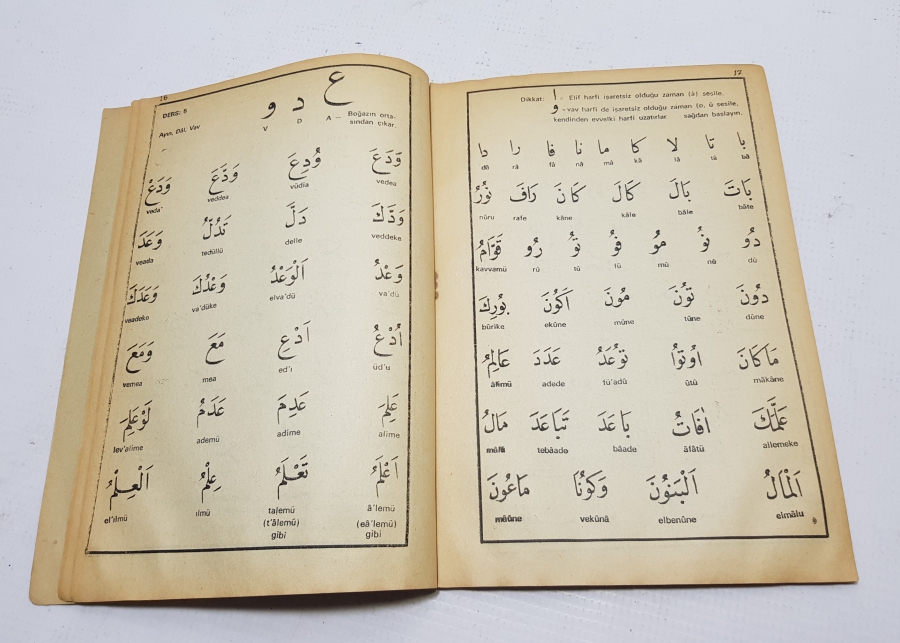 16
DERS: 5
Ayın, Dâl, Vav
ع د و
V D A — Boğazın orta-
sından çıkar.
وَدَعَ وُدِعَ وَدَّعَ وَدَعْ
vedea vûdia veddea veda'
وَدَّكَ دَلَّ تَدُلُّ وَعَدَ
veddeke delle tedüllü veada
وَعْدُ اَلْوَعْدُ وَعْدُكَ وَعَدَكَ
va'dü elva'dü va'düke veadeke
اُدْعُ اَدْعِ مَعَ وَمَعَ
üd'u ed'ı mea vemea
عَلِمَ عَدِمَ عَدَمُ لَوْعَلِمَ
alime adime ademü lev'alime
اَعْلَمُ تَعْلَمُ عِلْمُ اَلْعِلْمُ
â'lemü talemü ılmü el'ılmü
(eâ'lemü) (t'âlemü)
gibi gibi
17
Dikkat: ا - Elif harfi işaretsiz olduğu zaman (â) sesile,
و - vav harfi de işaretsiz olduğu zaman (o, û sesile,
kendinden evvelki harfi uzatırlar sağdan başlayın.
بَا تَا لَا كَا مَا نَا فَا رَا دَا
bâ tâ lâ kâ mâ nâ fâ râ dâ
بَاتَ بَالَ كَالَ كَانَ رَافَ نُورُ
bâte bâle kâle kâne rafe nûru
دُو نُو مُو فُو تُو رُو قَوَّامُ
dü nü mü fü tü rü kavvamü
دُونَ تُونَ مُونَ اَكُونَ بُورِكَ
düne tûne mûne ekûne bûrike
مَاكَانَ اُوتُوا تُوعَدُ عَدَدَ عَالِمُ
mâkâne ûtû tû'adü adede âlimü
عَلَّمَكَ اٰفَاتُ بَاعَدَ تَبَاعَدَ مَالُ
allemeke âfâtü bâade tebâade mâlü
اَلْمَالُ اَلْبَنُونَ وَكُونَا مَاعُونَ
elmâlu elbenûne vekûnâ mâûne